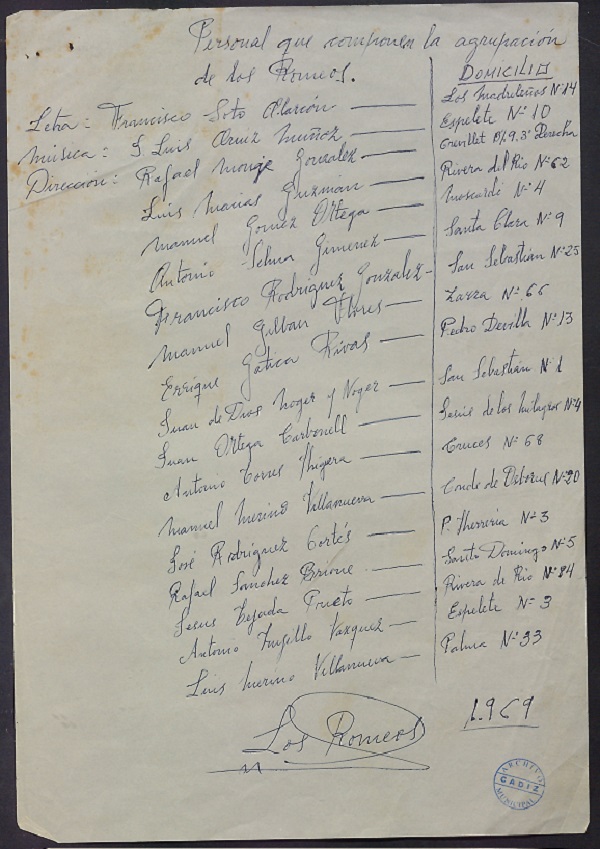 Personal que componen la agrupación
de los Romeos.
DOMICILIO
Letra: Francisco Soto Alarcón — Los Madrileños Nº 14
Musica: S. Luis Muñoz — Espelete Nº 10
Dirección: Rafael Monje Gonzalez — 9, 3º Derecha
Luis Macias Guzmán — Rivera del Rio Nº 62
Manuel Gomez Ortega — Moscardó Nº 4
Antonio Selma Gimenez — Santa Clara Nº 9
Francisco Rodriguez Gonzalez — San Sebastian Nº 25
Manuel Flores — Zarza Nº 66
Enrique Gatica Rivas — Pedro Nº 13
Juan de Dios Noger y Noger — San Sebastian Nº 1
Juan Ortega Carbonell — de los Milagros Nº 4
Antonio Torres — Cruces Nº 68
Manuel Merino Villanueva — Conde de Nº 20
José Rodriguez Cortés — P. Nº 3
Rafael Sanchez — Santo Domingo Nº 5
Jesus Tejada Prieto — Rivera de Rio Nº 84
Antonio Trujillo Vazquez — Espelete Nº 3
Luis Merino Villanueva — Palma Nº 33
1.969
Los Romeos
ARCHIVO
CADIZ
MUNICIPAL